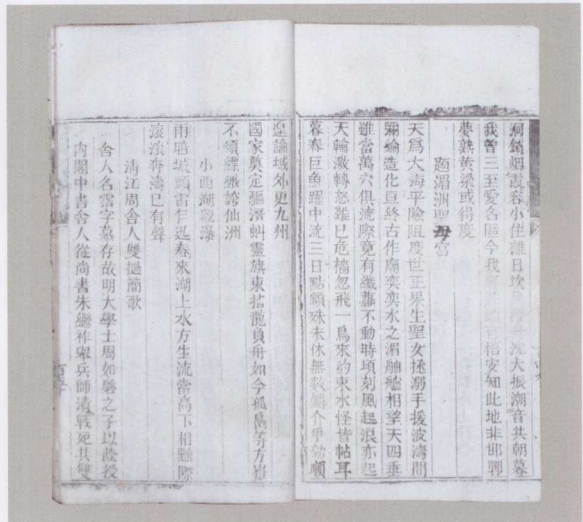 洞鎖烟霞容小住誰日埃 沈大振潮音共朝暮
我曾三至愛名區今我 悟安知此地非邯鄲
夢熟黄粱或得度
題湄洲聖母宮
天為大海平險阻慶世正果生聖女拯溺手援波濤間
彌綸造化亘終古作廟奕奕水之湄舳艫相望天四垂
雖當萬穴俱流際竟有纖蘿不動時頃刻風起浪亦起
天輪激轉怒雖已危檣忽飛一鳥來約束水怪皆帖耳
暮春巨魚躍中流三日點額殊未休無數 介爭幼顧
遑論域外更九州
國家奠定 潛虬靈旗東指龍負舟如今孤島等方
不須縹緲誇仙洲
小西湖觀瀑
雨噎城頭雷乍迅春來湖上水方生流當高下相懸際
滾滾奔濤已有聲
清江周舍人雙挝簡歌
舍人名霑字 存故明大學士周如磐之子以蔭授
內閣中書舍人從尚書朱繼祚舉兵師潰戰死其雙